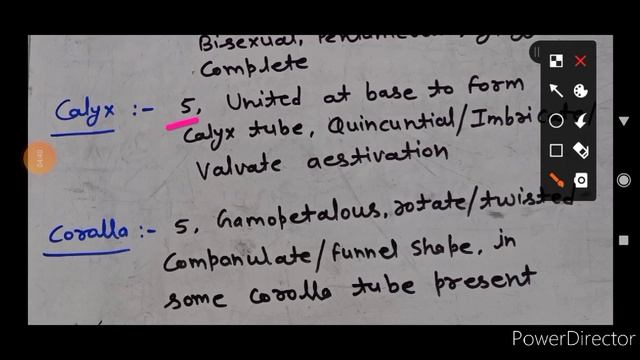 Bisexual,
Complete
Calyx :- 5, United at base to form
Calyx tube, Quincuntial/Imbricate/
Valvate aestivation
Coralla :- 5, Gamopetalous, rotate/twisted
Companulate/funnel shape, in
some corolla tube present
04:40
PowerDirector